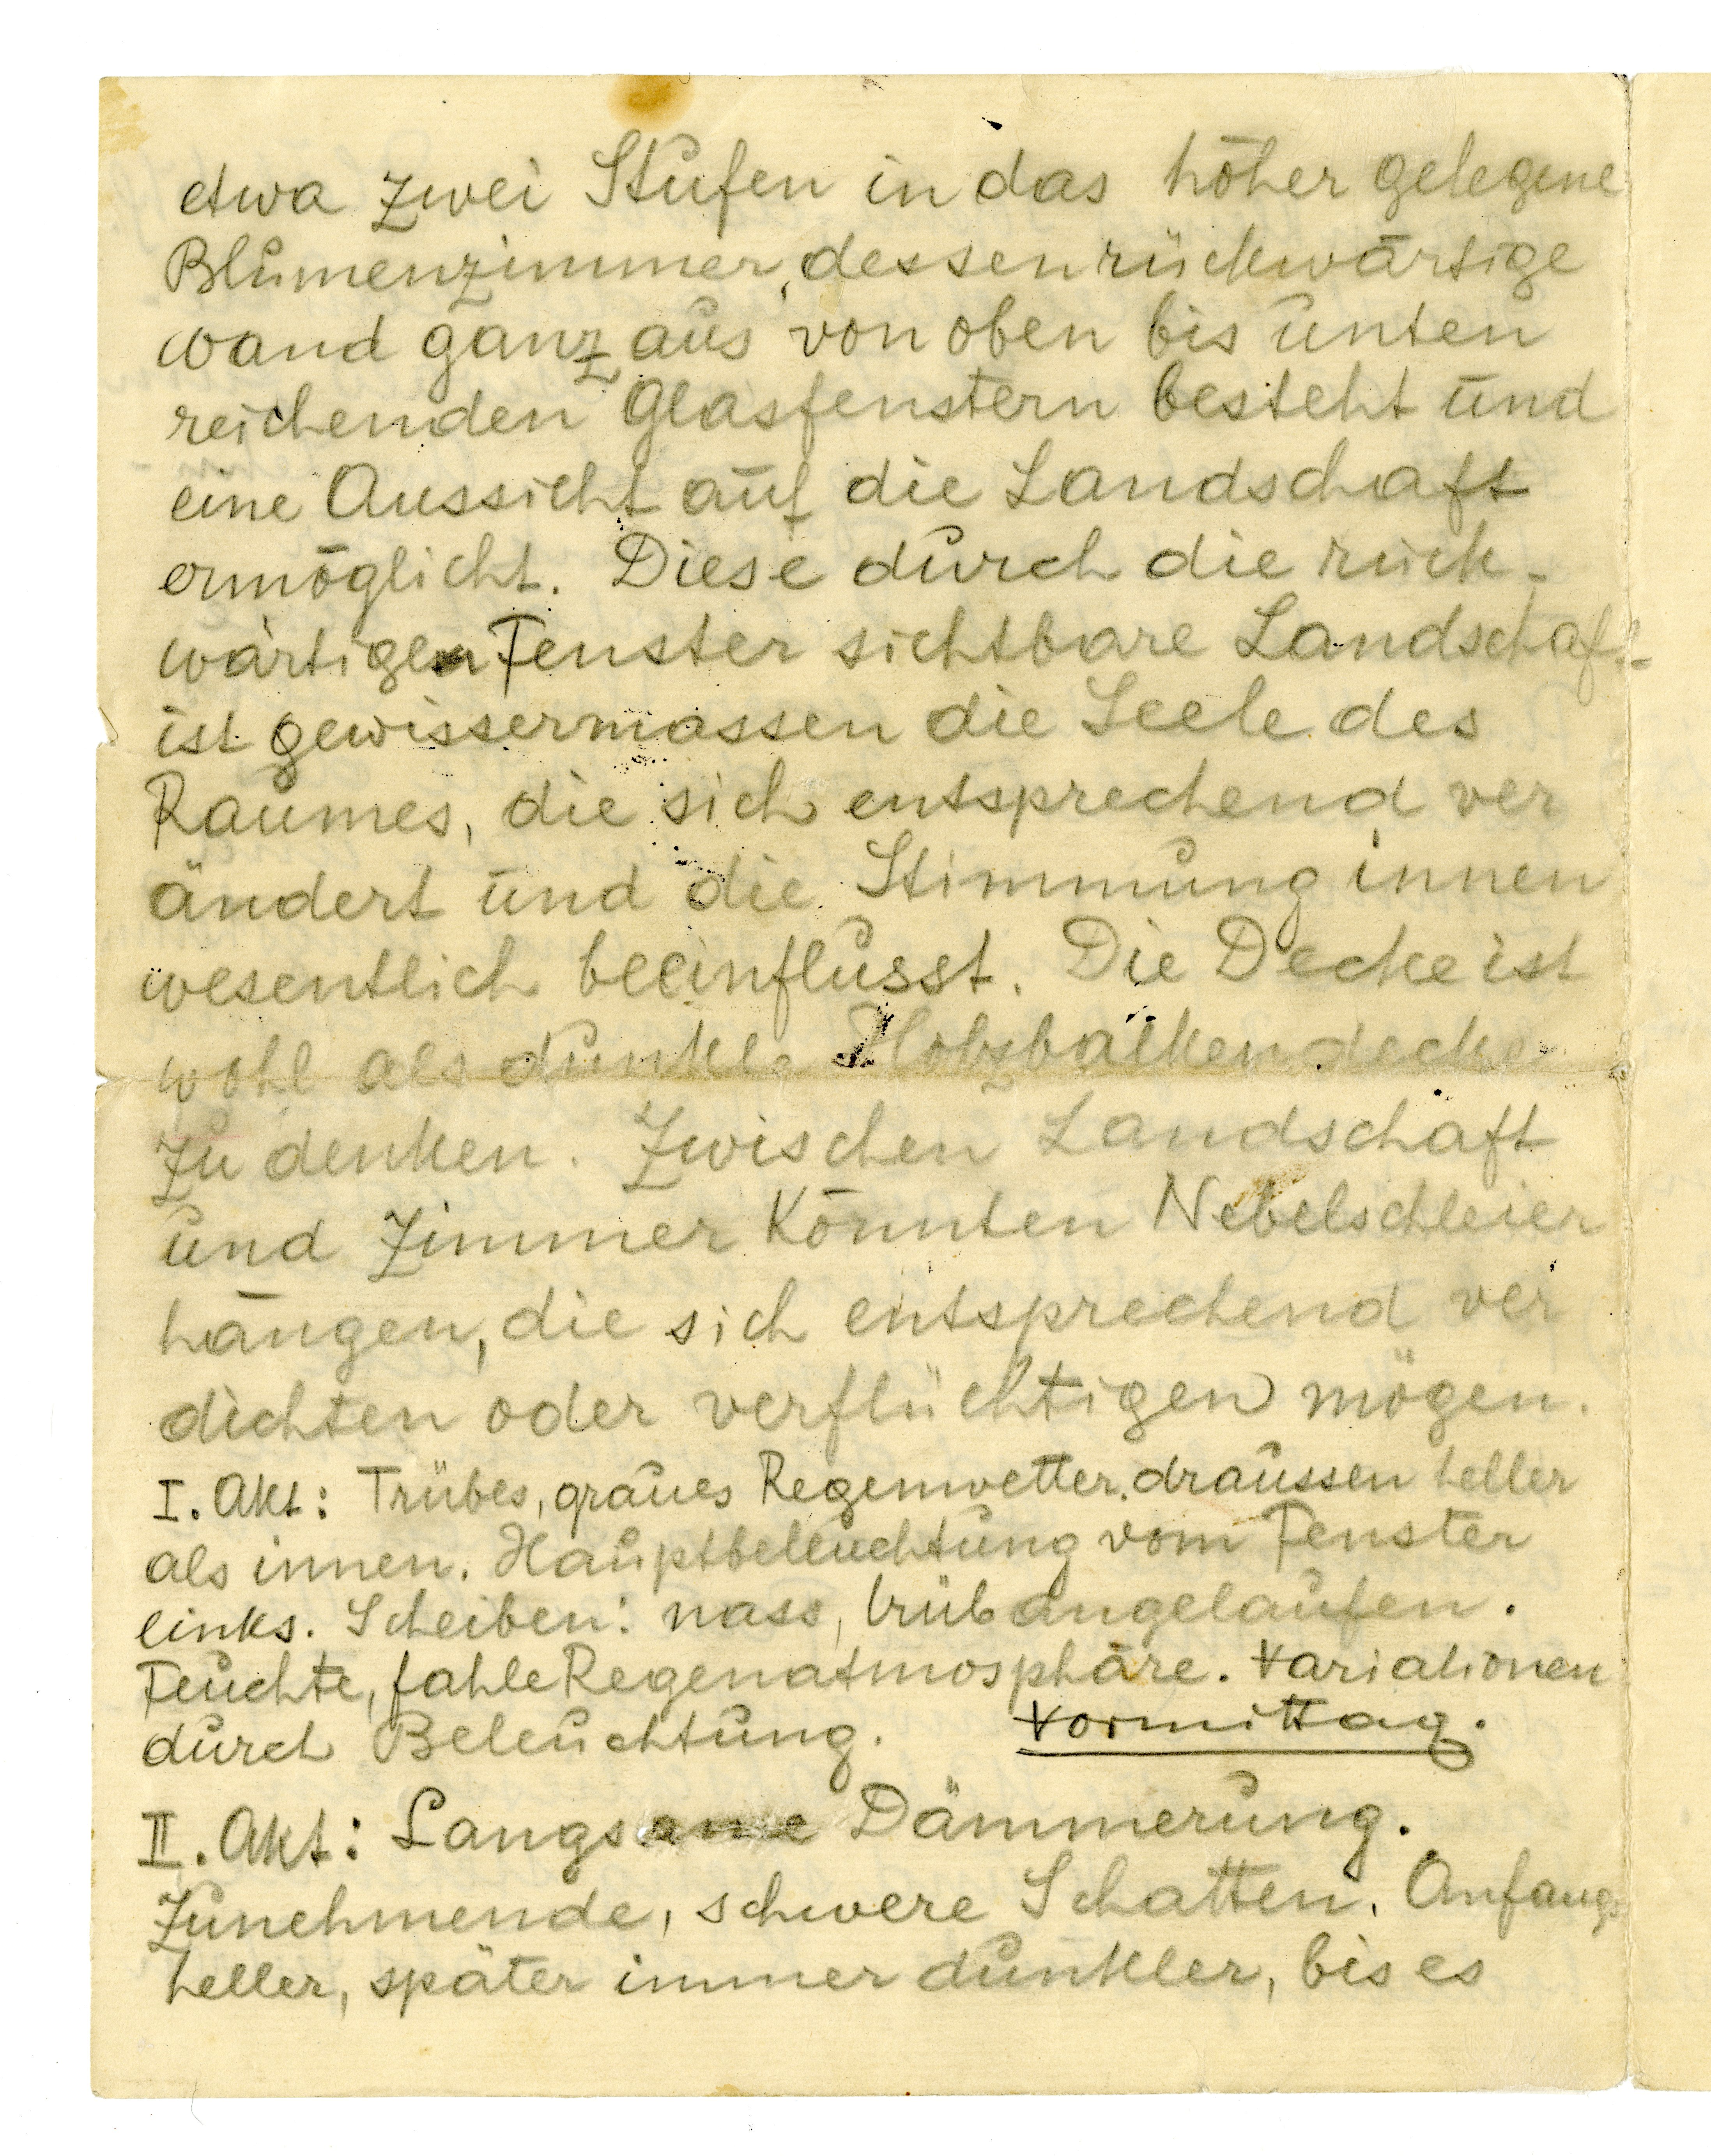 etwa zwei Stufen in das höher gelegene
Blumenzimmer, dessen rückwärtige
wand ganz aus von oben bis unten
reichenden Glasfenstern besteht und
eine Aussicht auf die Landschaft
ermöglicht. Diese durch die rück-
wärtigen Fenster sichtbare Landschaft
ist gewissermassen die Seele des
Raumes, die sich entsprechend ver
ändert und die Stimmung innen
wesentlich beeinflusst. Die Decke ist
wohl als dunkle Holzbalkendecke
zu denken. Zwischen Landschaft
und Zimmer könnten Nebelschleier
hängen, die sich entsprechend ver
dichten oder verflüchtigen mögen.
I. Akt: Trübes, graues Regenwetter. draussen heller
als innen. Hauptbeleuchtung vom Fenster
links. Scheiben: nass, trüb angelaufen.
Feuchte, fahle Regenatmosphäre. Variationen
durch Beleuchtung. Vormittag.
II. Akt: Langsame Dämmerung.
Zunehmende, schwere Schatten. Anfangs
heller, später immer dunkler, bis es